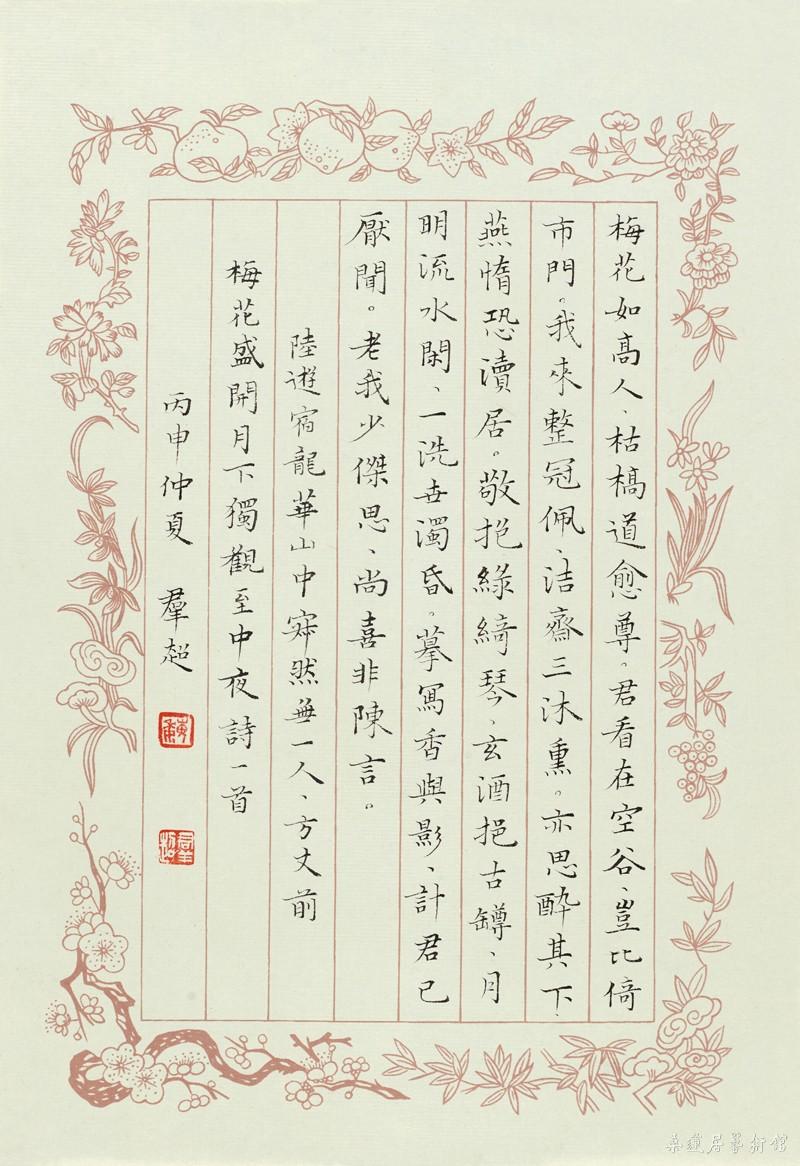 梅花如高人、枯槁道愈尊。君看在空谷、豈比倚
市門。我來整冠佩、洁齋三沐熏。亦思醉其下、
燕惰恐瀆居。敬抱綠綺琴、玄酒挹古罇、月
明流水閑、一洗世濁昏。摹寫香與影、計君已
厭聞。老我少傑思、尚喜非陳言。
陸遊宿龍華山中寂然無一人、方丈前
梅花盛開月下獨觀至中夜詩一首
丙申仲夏 羣超
桑蓮居藝術馆